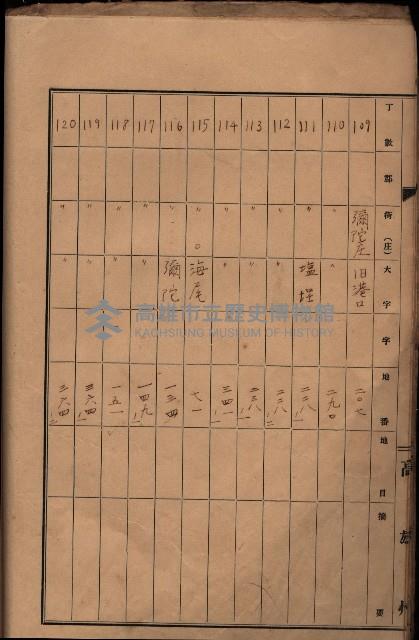 丁數 郡 街(庄) 大字 字 地番 地目 摘要
109 彌陀庄 旧港口 二〇七
110 〃 〃 二九〇
111 〃 塩埕 二二八
112 〃 〃 二三八
113 〃 〃 二三八
114 〃 〃 三四一
115 〃 海尾 七一
116 〃 彌陀
117 〃 〃 一四九
118 〃 〃 一五一
119 〃 〃 三六四
120 〃 〃 三六四
高雄州
高雄市立歷史博物館
KAOHSIUNG MUSEUM OF HISTORY